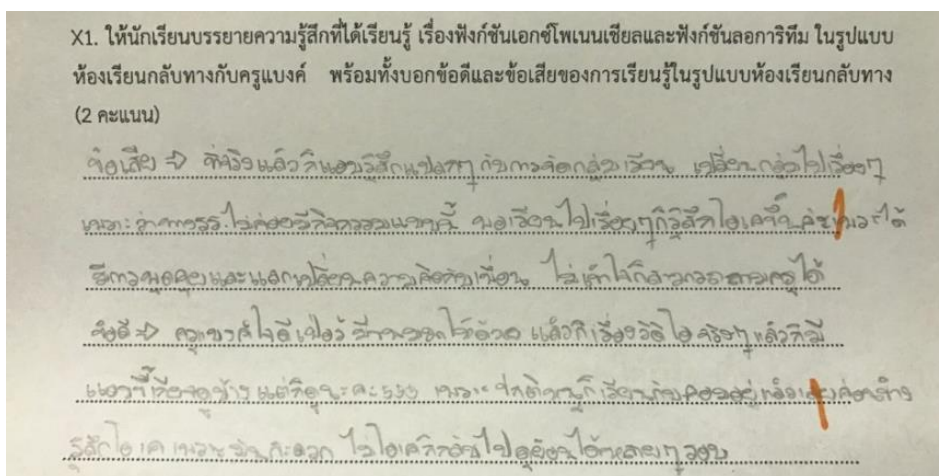 X1. ให้นักเรียนบรรยายความรู้สึกที่ได้เรียนรู้ เรื่องฟังก์ชันเอกซ์โพเนนเชียลและฟังก์ชันลอการิทึม ในรูปแบบ
ห้องเรียนกลับทางกับครูแบงค์ พร้อมทั้งบอกข้อดีและข้อเสียของการเรียนรู้ในรูปแบบห้องเรียนกลับทาง
(2 คะแนน)
ข้อเสีย ⇒ ที่จริงแล้วก็แอบรู้สึกแปลกๆ กับการจัดกลุ่มเรียน เปลี่ยนกลุ่มไปเรื่อยๆ
เพราะว่าทางรร.ไม่ค่อยมีกิจกรรมแบบนี้ พอเรียนไปเรื่อยๆก็รู้สึกโอเคขึ้นค่ะ เพราะได้
มีการพูดคุยและแลกเปลี่ยนความคิดกับเพื่อน ไม่เข้าใจก็สามารถถามครูได้
ข้อดี ⇒ ครูแบงค์ใจดีเฟอร์ มีขนมแจกให้ด้วย แล้วก็เรื่องวิดีโอ จริงๆแล้วก็มี
แอบขี้เกียจดูบ้าง แต่ก็ดูนะคะ555 เพราะปกติหนูก็เรียนกับคอมอยู่แล้วเลยค่อนข้าง
รู้สึกโอเค เพราะมันสะดวก ไม่โอเคก็กลับไปดูย้อนได้หลายๆรอบ